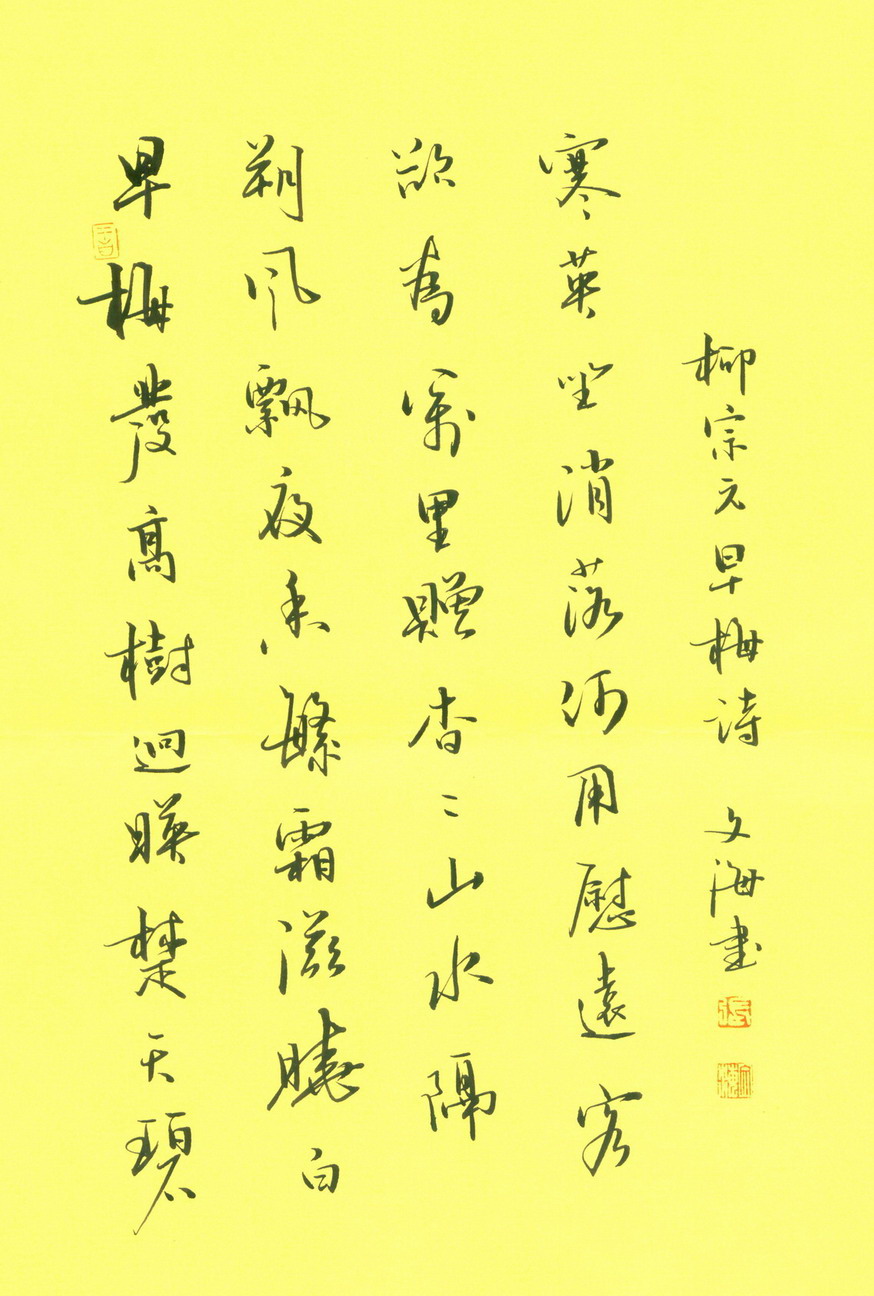 早梅發高樹迥暎楚天碧
朔風飄夜香繁霜滋曉白
欲為萬里贈杳〻山水隔
寒英坐消落何用慰遠客
柳宗元早梅诗 文海書